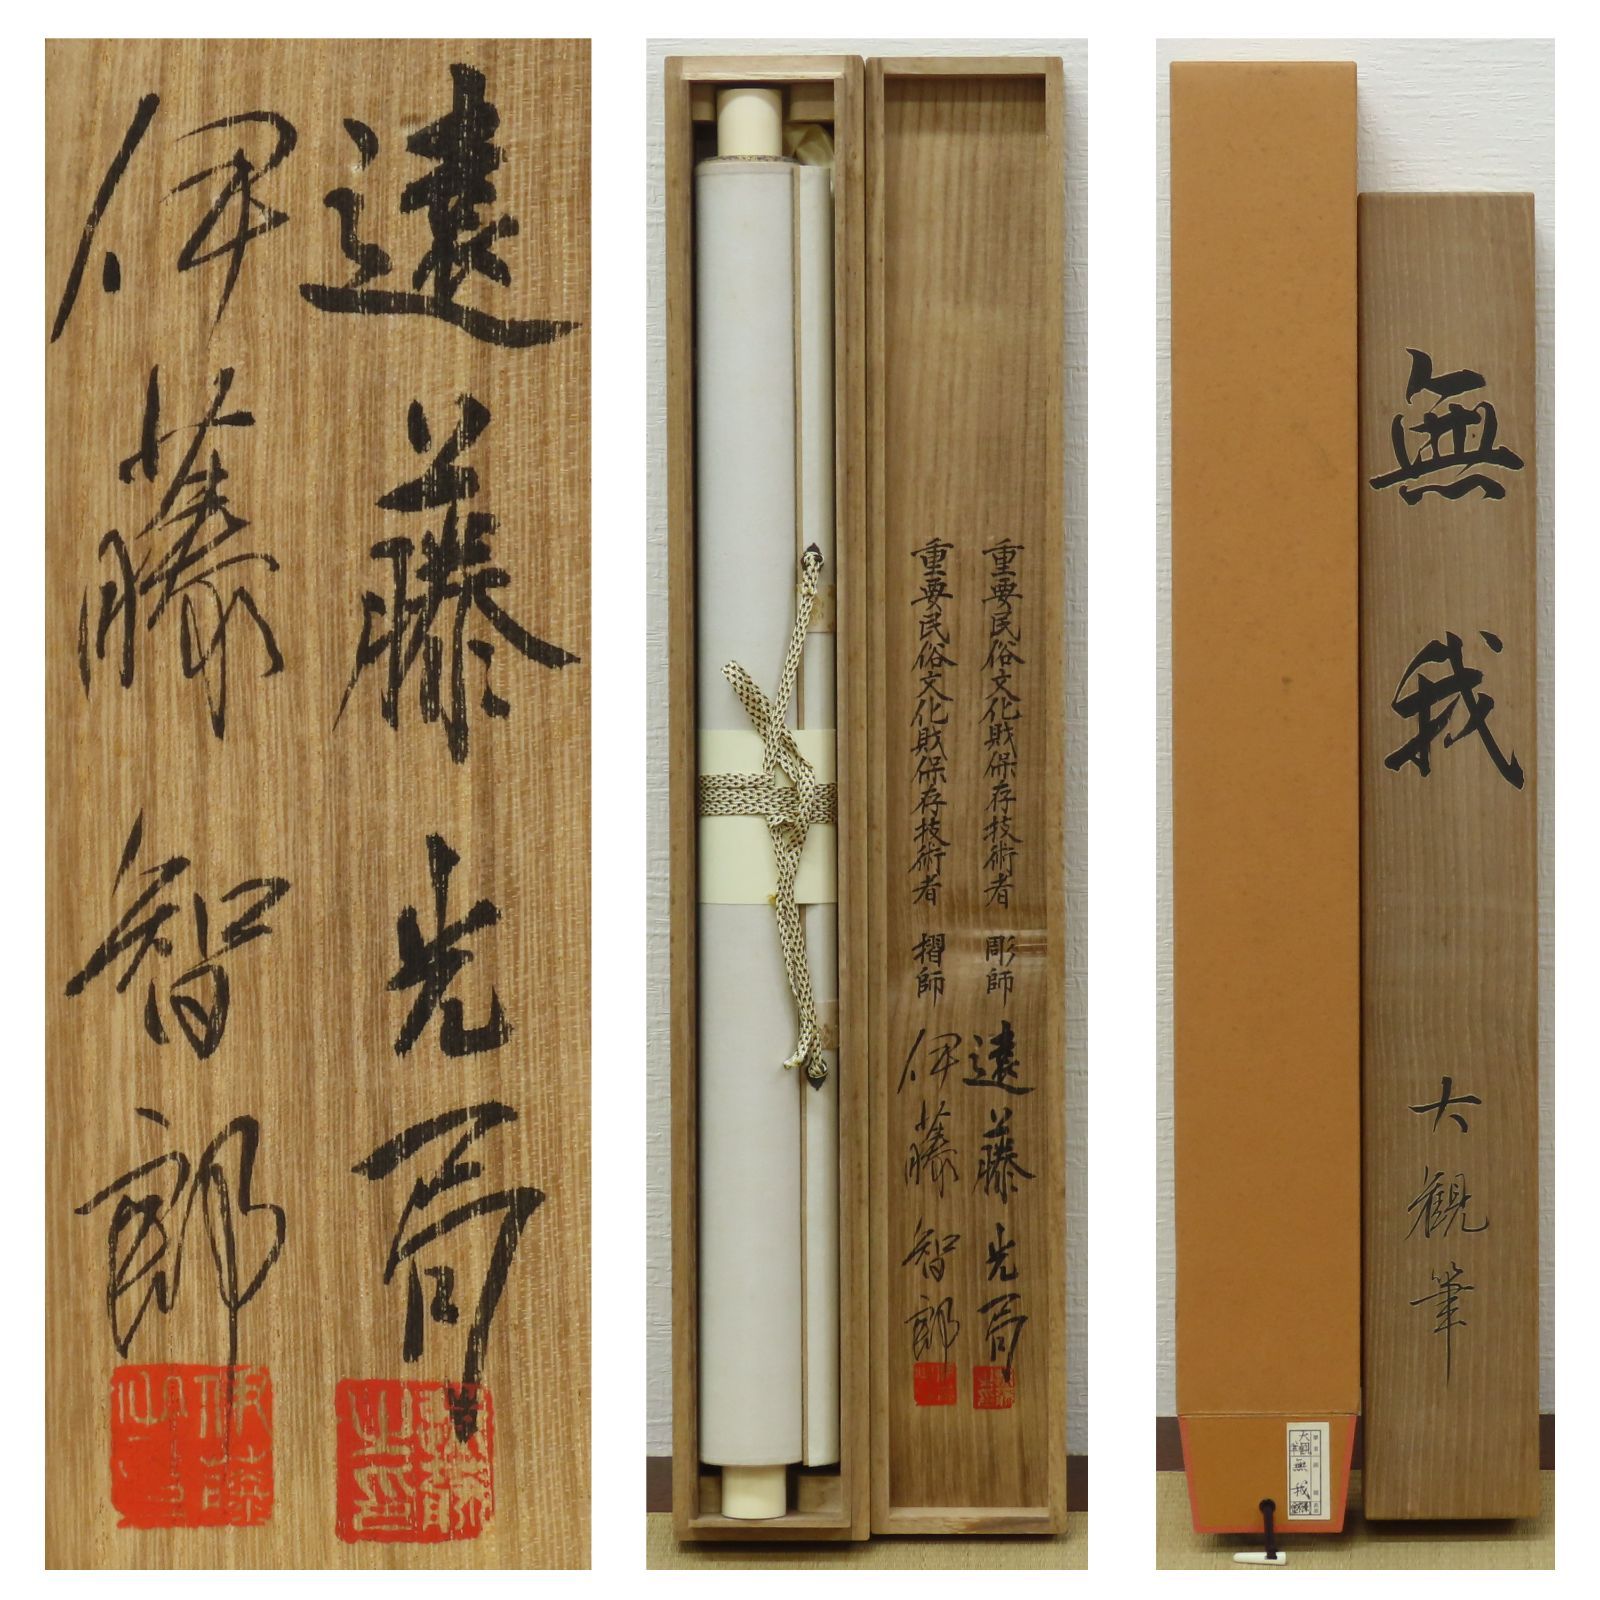 遠藤光局
伊藤智郎
重要民俗文化財保存技術者 彫師 遠藤光局
重要民俗文化財保存技術者 摺師 伊藤智郎
無我 大観筆
大観
無我